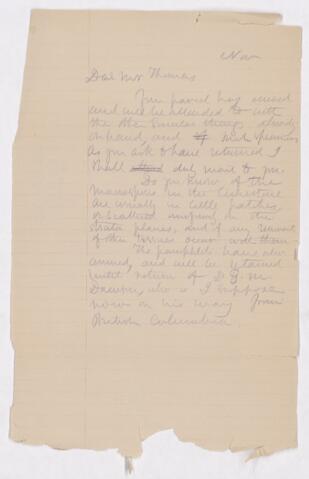 Nov
Dear Mr Thomas
Your parcel has arrived
and will be attended to with
the other similar things already
on hand, and such specimens
as you ask to have returned I
shall duly mail to you.
Do you know if the
in the
are usually in little patches
or scattered on the
planes, and if any remains
of other occur with them
The pamphlets have also
arrived, and will be retained
until return of D. G. M
Dawson, who is I suppose
now on his way from
British Columbia.